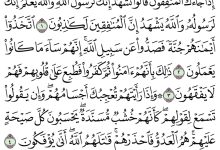 إِذَا جَآءَكَ ٱلْمُنَٰفِقُونَ قَالُوا۟ نَشْهَدُ إِنَّكَ لَرَسُولُ ٱللَّهِ وَٱللَّهُ يَعْلَمُ إِنَّكَ
لَرَسُولُهُۥ وَٱللَّهُ يَشْهَدُ إِنَّ ٱلْمُنَٰفِقِينَ لَكَٰذِبُونَ ١ ٱتَّخَذُوٓا۟
أَيْمَٰنَهُمْ جُنَّةً فَصَدُّوا۟ عَن سَبِيلِ ٱللَّهِ إِنَّهُمْ سَآءَ مَا كَانُوا۟
يَعْمَلُونَ ٢ ذَٰلِكَ بِأَنَّهُمْ ءَامَنُوا۟ ثُمَّ كَفَرُوا۟ فَطُبِعَ عَلَىٰ قُلُوبِهِمْ فَهُمْ
لَا يَفْقَهُونَ ٣ وَإِذَا رَأَيْتَهُمْ تُعْجِبُكَ أَجْسَامُهُمْ وَإِن يَقُولُوا۟
تَسْمَعْ لِقَوْلِهِمْ كَأَنَّهُمْ خُشُبٌ مُّسَنَّدَةٌ يَحْسَبُونَ كُلَّ صَيْحَةٍ
عَلَيْهِمْ هُمُ ٱلْعَدُوُّ فَٱحْذَرْهُمْ قَٰتَلَهُمُ ٱللَّهُ أَنَّىٰ يُؤْفَكُونَ ٤